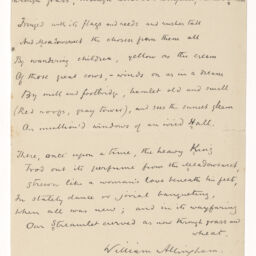 Fringed with its flags and reeds and rushes tall
And Meadowsweet the chosen from them all
By wandering children, yellow as the cream
Of those great cows, winds on as in a dream
By mill and footbridge, hamlet old and small
(Red roofs, gray tower), and sees the sunset gleam
On mullion'd windows of an ivied Hall.
There, once upon a time, the heavy King
Trod out its perfume from the Meadowsweet,
Strown like a woman's love beneath his feet,
In stately dance or jovial banqueting,
When all was new; and in its wayfaring
Our Streamlet curved as now through grass and
wheat.
William Allingham.